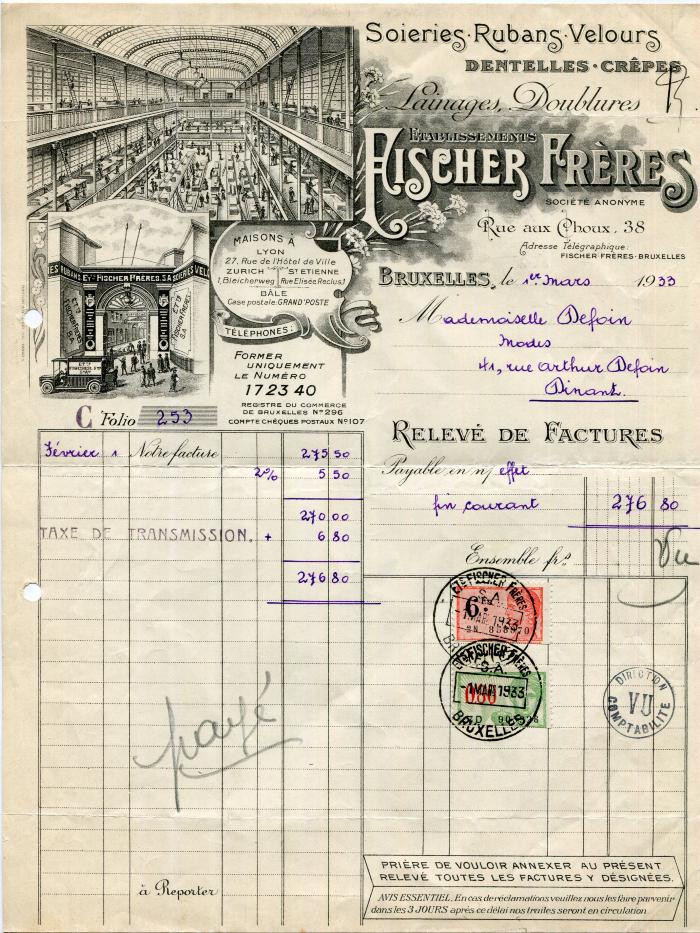 Soieries·Rubans·Velours
DENTELLES·CRÊPES
Lainages, Doublures
ETABLISSEMENTS
FISCHER FRÈRES
SOCIÉTÉ ANONYME
Rue aux Choux. 38
Adresse Télégraphique:
FISCHER-FRÈRES-BRUXELLES
ETS FISCHER FRÈRES. S.A
MAISONS À
LYON
27, Rue de l'Hôtel de Ville
ZURICH ST ETIENNE
1, Bleicherweg Rue Elisée Reclus, 1
BÂLE
Case postale: GRAND'POSTE
TÉLÉPHONES:
FORMER
UNIQUEMENT
LE NUMÉRO
172340
REGISTRE DU COMMERCE
DE BRUXELLES Nº 296
COMPTE CHÈQUES POSTAUX Nº 107
BRUXELLES, le 1er mars 1933
Mademoiselle Defoin
Modes
41, rue Arthur Defoin
Dinant.
C Folio 253
RELEVÉ DE FACTURES
Février 1 Notre facture 275 50
2% 5 50
270 00
TAXE DE TRANSMISSION. + 6 80
276 80
Payable en n/ effet
fin courant 276 80
Ensemble frs.
Vu
ETS FISCHER FRÈRES
S.A.
6.
-1 MAR 1933
BRUXELLES
ETS FISCHER FRÈRES
S.A.
-1 MAR 1933
0,80
BRUXELLES
DIRECTION
VU
COMPTABILITE
payé
à Reporter
PRIÈRE DE VOULOIR ANNEXER AU PRÉSENT
RELEVÉ TOUTES LES FACTURES Y DÉSIGNÉES.
AVIS ESSENTIEL. En cas de réclamations veuillez nous les faire parvenir
dans les 3 JOURS après ce délai nos traites seront en circulation